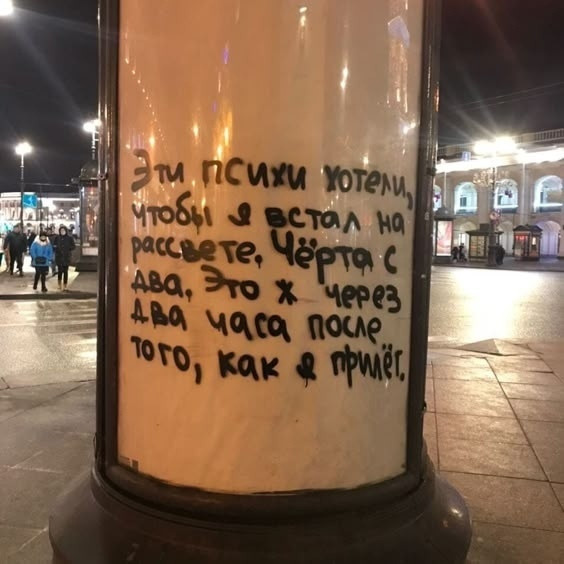 Эти психи хотели,
чтобы я встал на
рассвете. Чёрта с
два. Это ж через
два часа после
того, как я прилёг.